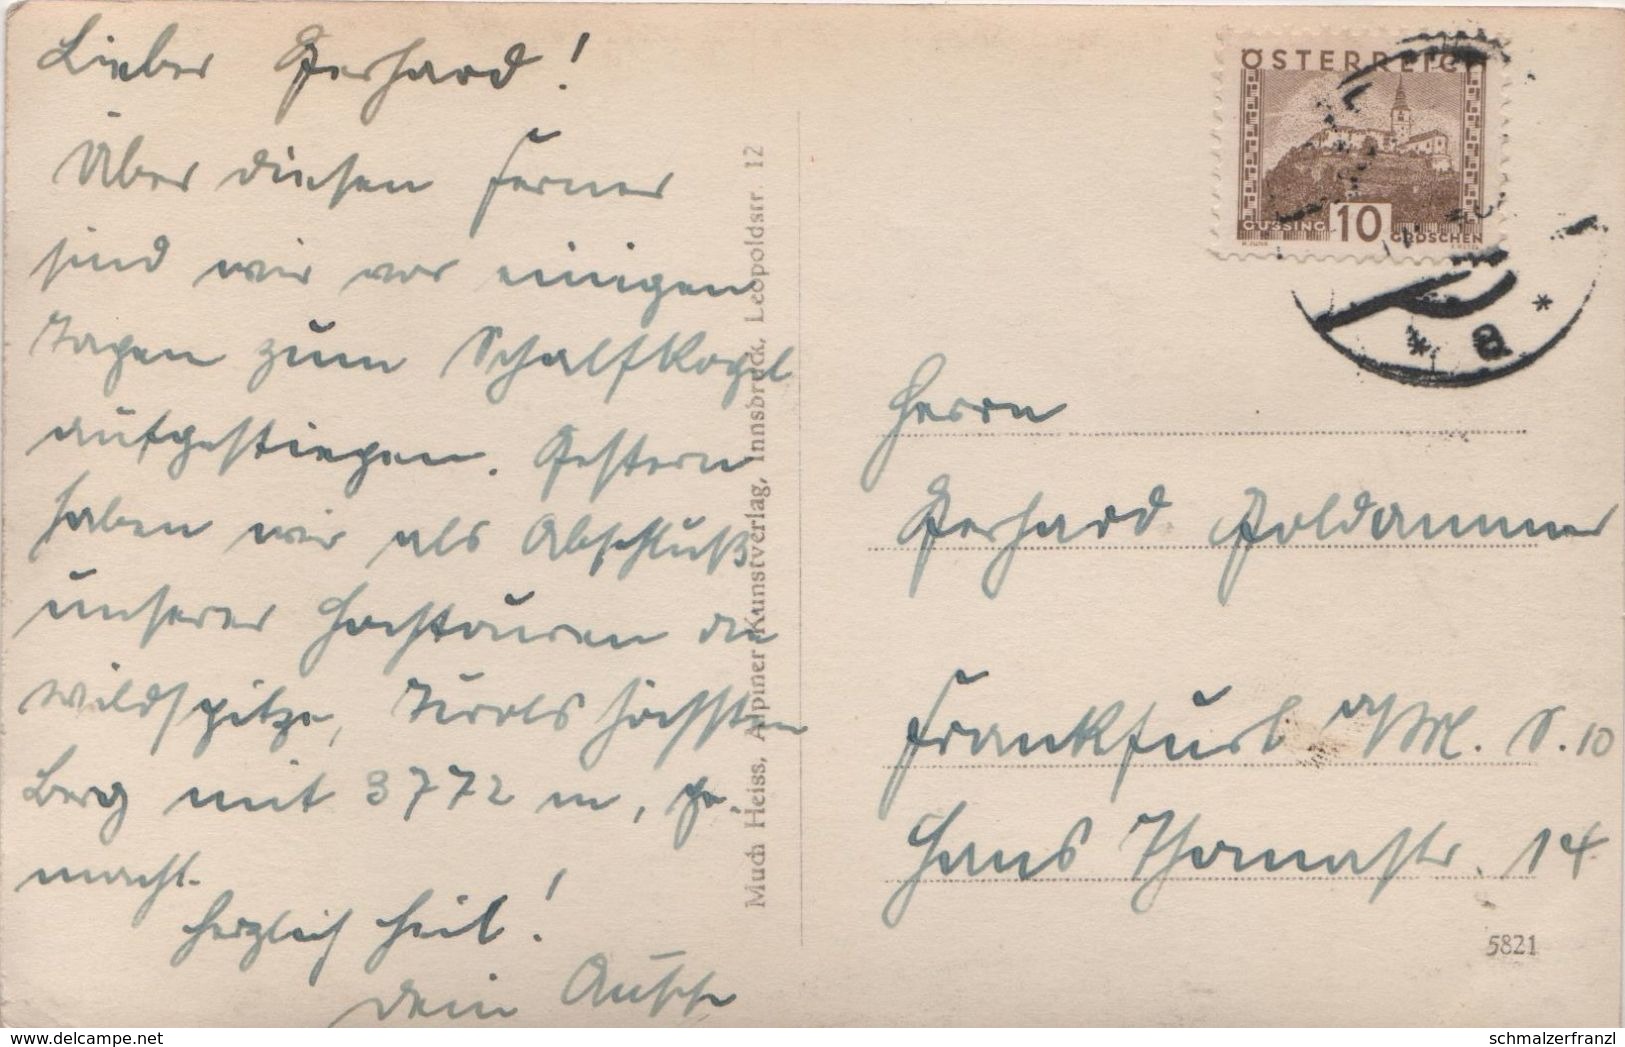 Lieber Gerhard!
Über diesen Ferner
sind wir vor einigen
Tagen zum Schalfkogel
aufgestiegen. Gestern
haben wir als Abschluß
unserer Hochtouren die
Wildspitze, Tirols höchsten
Berg mit 3772 m, ge-
macht.
Herzlich Heil!
Dein
Much Heiss, Alpiner Kunstverlag, Innsbruck, Leopoldstr. 12
ÖSTERREICH
GÜSSING 10 GROSCHEN
a
Herrn
Gerhard Goldammer
Frankfurt a/M. S. 10
Hans Thomastr. 14
5821
www.delcampe.net
schmalzerfranzl